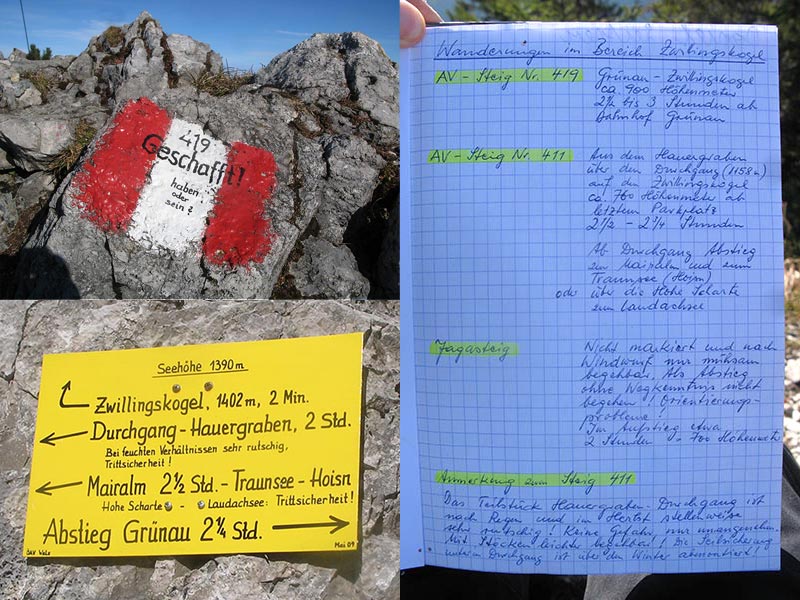 419
Geschafft!
haben
oder
sein?
Seehöhe 1390m
Zwillingskogel, 1402m, 2 Min.
Durchgang-Hauergraben, 2 Std.
Bei feuchten Verhältnissen sehr rutschig,
Trittsicherheit!
Mairalm 2½ Std. - Traunsee - Hoisn
Hohe Scharte - Laudachsee: Trittsicherheit!
Abstieg Grünau 2¼ Std.
ÖAV Wels Mai 09
Wanderungen im Bereich Zwillingskogel
AV-Steig Nr. 419 Grünau - Zwillingskogel
ca. 900 Höhenmeter
2½ bis 3 Stunden ab
Bahnhof Grünau
AV-Steig Nr. 411 Aus dem Hauergraben
über den Durchgang (1158m)
auf den Zwillingskogel
ca. 760 Höhenmeter ab
letztem Parkplatz
2½ - 2¾ Stunden
Ab Durchgang Abstieg
zur Mairalm und zum
Traunsee (Hoisn)
oder über die Hohe Scharte
zum Laudachsee
Jagasteig Nicht markiert und nach
Windwurf nur mühsam
begehbar. Als Abstieg
ohne Wegkenntnis nicht
begehen! Orientierungs-
probleme!
Im Aufstieg etwa
2 Stunden - 700 Höhenmeter
Anmerkung zum Steig 411
Das Teilstück Hauergraben - Durchgang ist
nach Regen und im Herbst stellenweise
sehr rutschig! Keine Gefahr, nur unangenehm.
Mit Stöcken leichter begehbar! Die Seilsicherung
unterm Durchgang ist über den Winter abmontiert!